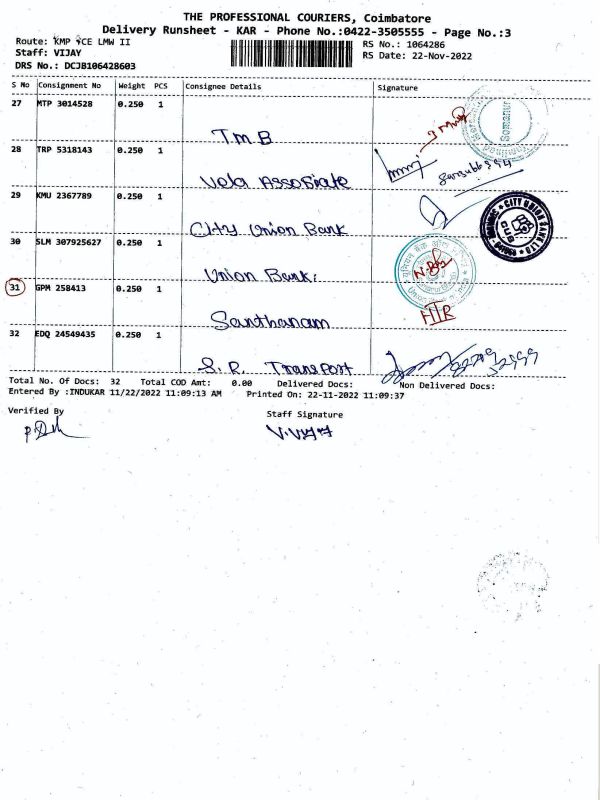 THE PROFESSIONAL COURIERS, Coimbatore
Delivery Runsheet - KAR - Phone No.:0422-3505555 - Page No.:3
Route: KMP CE LMW II
RS No.: 1064286
Staff: VIJAY
RS Date: 22-Nov-2022
DRS No.: DCJB106428603
S No Consignment No Weight PCS Consignee Details Signature
27 MTP 3014528 0.250 1
T.M.B
Somanur
28 TRP 5318143 0.250 1
Vela Assosiate
29 KMU 2367789 0.250 1
City Union Bank
CITY UNION BANK LTD
CUB
30 SLM 307925627 0.250 1
Union Bank.
31 GPM 258413 0.250 1
Santhanam
HTR
32 EDQ 24549435 0.250 1
S.R. Transport
Total No. Of Docs: 32 Total COD Amt: 0.00 Delivered Docs: Non Delivered Docs:
Entered By :INDUKAR 11/22/2022 11:09:13 AM Printed On: 22-11-2022 11:09:37
Verified By
Staff Signature